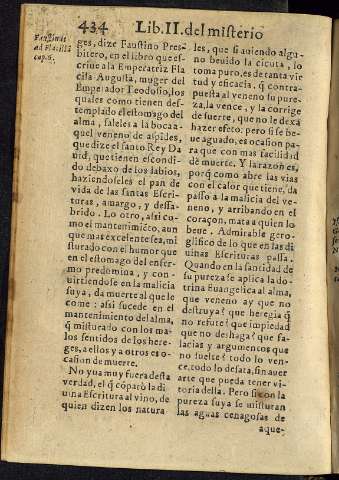 434 Lib. II. del misterio
Faustinus
ad Flacillã
cap. 6.
ges, dize Faustino Pres-
bitero, en el libro que es-
criue a la Emperatriz Fla
cila Augusta, muger del
Emperador Teodosio, los
quales como tienen des-
templado el estomago del
alma, saleles a la boca a-
quel veneno de aspides,
que dize el santo Rey Da
uid, que tienen escondi-
do debaxo de los labios,
haziendoseles el pan de
vida de las santas Escri-
turas, amargo, y dessa-
brido. Lo otro, assi co-
mo el mantenimiẽto, aun
que mas excelente sea, mi
sturado con el humor que
en el estomago del enfer-
mo predomina, y con-
uirtiendose en la malicia
suya, da muerte al que le
come: assi sucede en el
mantenimiento del alma,
q̃ misturado con los ma-
los sentidos de los here-
ges, a ellos y a otros es o-
casion de muerte.
No yua muy fuera desta
verdad, el q̃ cõparò la di
uina Escritura al vino, de
quien dizen los natura
les, que si auiendo algu-
no beuido la cicuta, lo
toma puro, es de tanta vir
tud y eficacia, q̃ contra-
puesta al veneno su pure-
za, la vence, y la corrige
de suerte, que no le dexa
hazer efeto: pero si se be-
ue aguado, es ocasion pa-
ra que con mas facilidad
dè muerte. Y la razon es,
porq̃ como abre las vias
con el calor que tiene, da
passo a la malicia del ve-
neno, y arribando en el
coraçon, mata a quien lo
beue. Admirable gero-
glifico de lo que en las di
uinas Escrituras passa.
Quando en la santidad de
su pureza se aplica la do-
trina Euangelica al alma,
que veneno ay que no
destruya? que heregia q̃
no refute? que impiedad
que no deshaga? que fa-
lacias y argumentos que
no suelte? todo lo ven-
ce, todo lo desata, sin auer
arte que pueda tener vi-
toria della. Pero si con la
pureza suya se misturan
las aguas cenagosas de
aque-